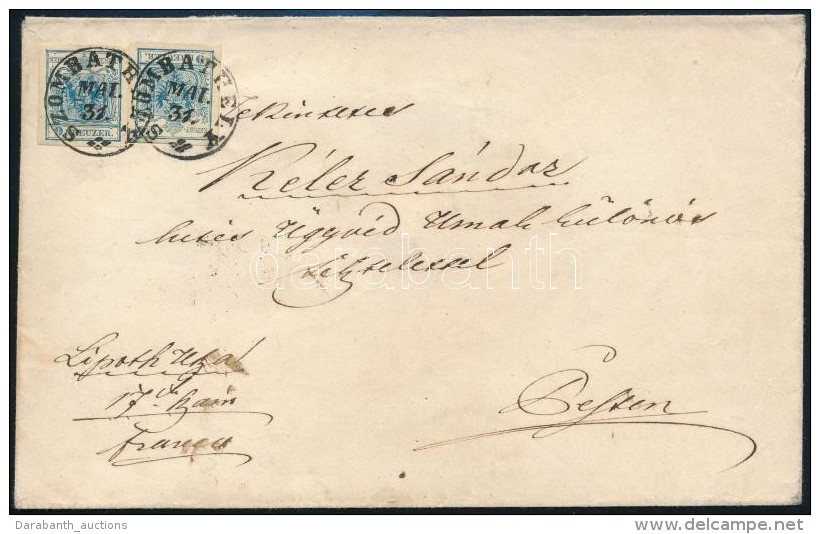 SZOMBATHELY
MAI.
31.
KREUZER.
SZOMBATHELY
MAI.
31.
Tekintetes
Kéler Sándor
hites Ügyvéd Urnak különös
tisztelettel
Lipoth Utza
17ik
Franco
Pesten
darabanth
Darabanth_auctions
delcampe.net